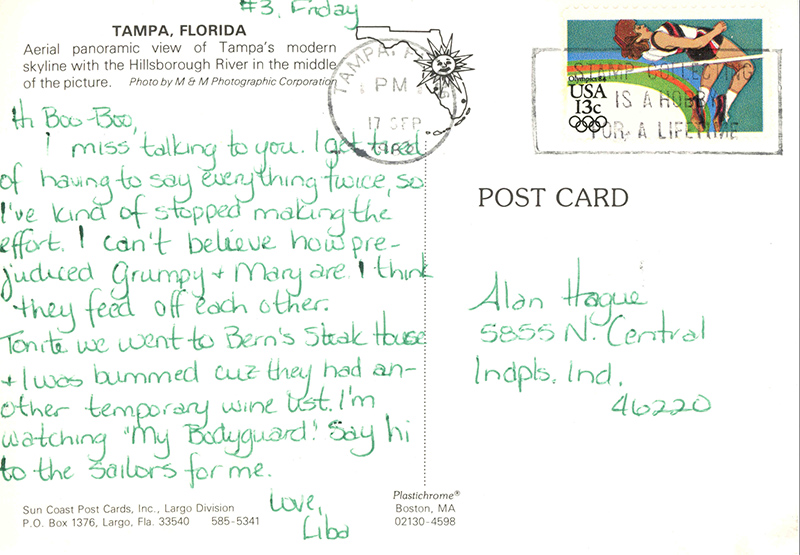 #3, Friday
TAMPA, FLORIDA
Aerial panoramic view of Tampa's modern
skyline with the Hillsborough River in the middle
of the picture. Photo by M & M Photographic Corporation
Hi Boo-Boo,
I miss talking to you. I get tired
of having to say everything twice, so
I've kind of stopped making the
effort. I can't believe how pre-
judiced Grumpy + Mary are. I think
they feed off each other.
Tonite we went to Bern's Steak House
+ I was bummed cuz they had an-
other temporary wine list. I'm
watching "My Bodyguard". Say hi
to the sailors for me.
Love,
Liba
Sun Coast Post Cards, Inc., Largo Division
P.O. Box 1376, Largo, Fla. 33540 585-5341
Plastichrome®
Boston, MA
02130-4598
TAMPA, 
PM
17 SEP
Olympics 84
USA
13c
STAMP COLLECTING
IS A HOBBY
FOR A LIFETIME
POST CARD
Alan Hague
5855 N. Central
Indpls. Ind.
46220